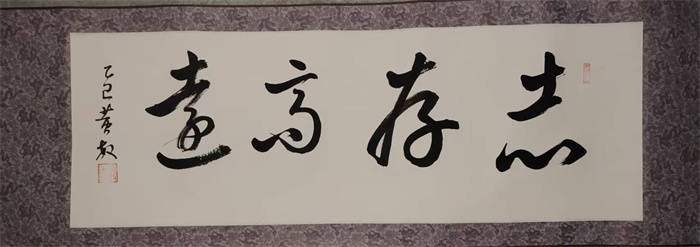 志存高遠
乙巳黄敖